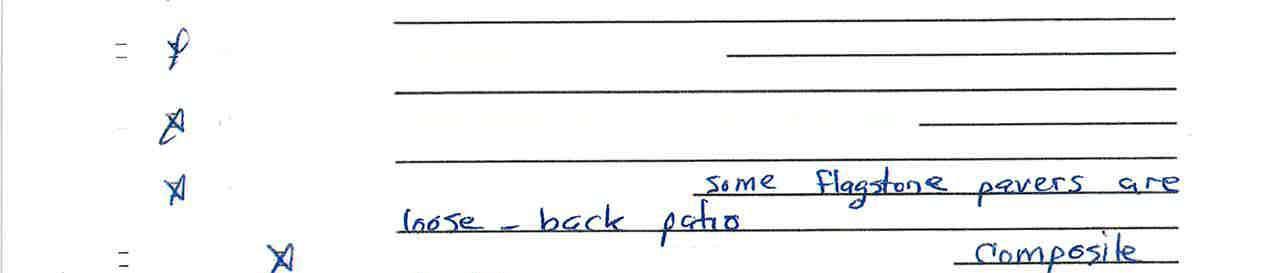 some flagstone pavers are
loose - back patio
Composite